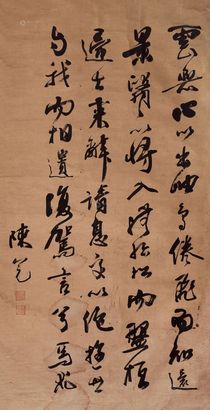 雲無心以出岫鳥倦飛而知還
景翳翳以將入撫孤松而盤桓
歸去来兮請息交以絶游世
与我而相遺復駕言兮焉求
陳